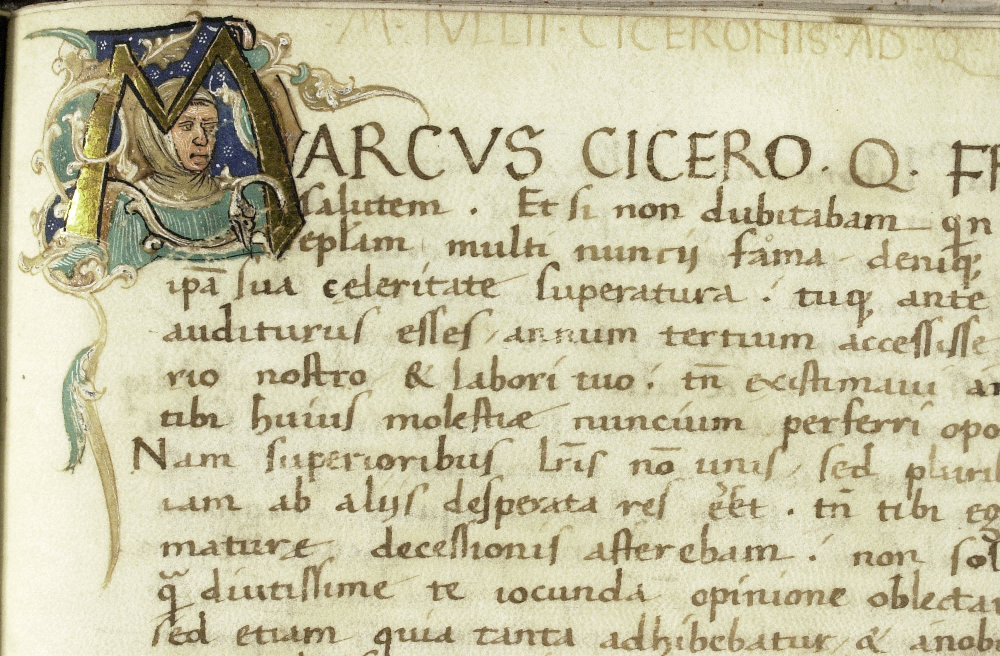 M · TVLLII · CICERONIS · AD · Q
MARCVS CICERO · Q · FR
salutem . Et si non dubitabam qn
eplam multi nuncij fama deniq;
ipā sua celeritate superatura . tuq; ante
auditurus esses annum tertium accessisse
rio nostro & labori tuo . tn̄ existimaui
tibi huius molestiæ nuncium perferri opo
Nam superioribus lr̄is nō unis sed plurib
iam ab alijs desperata res eēt . tn̄ tibi eg
maturę decessionis afferebam . non sol
q̄ diutissime te iocunda opinione oblecta
sed etiam quia tanta adhibebatur & anob